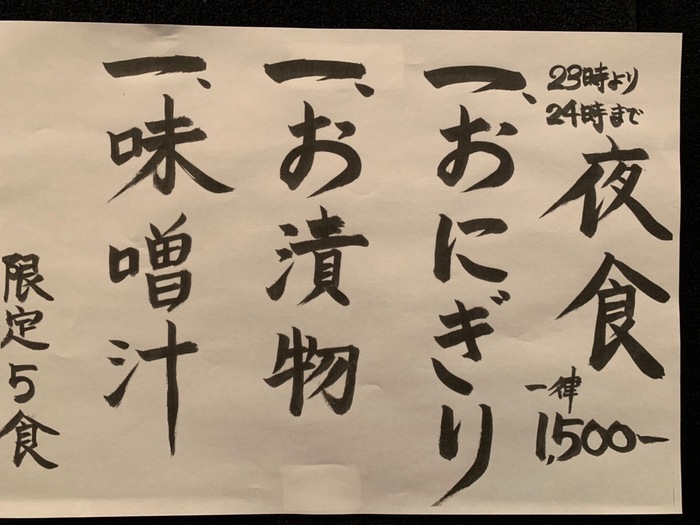 23時より
24時まで
夜食
一律
1,500ー
一、おにぎり
一、お漬物
一、味噌汁
限定5食